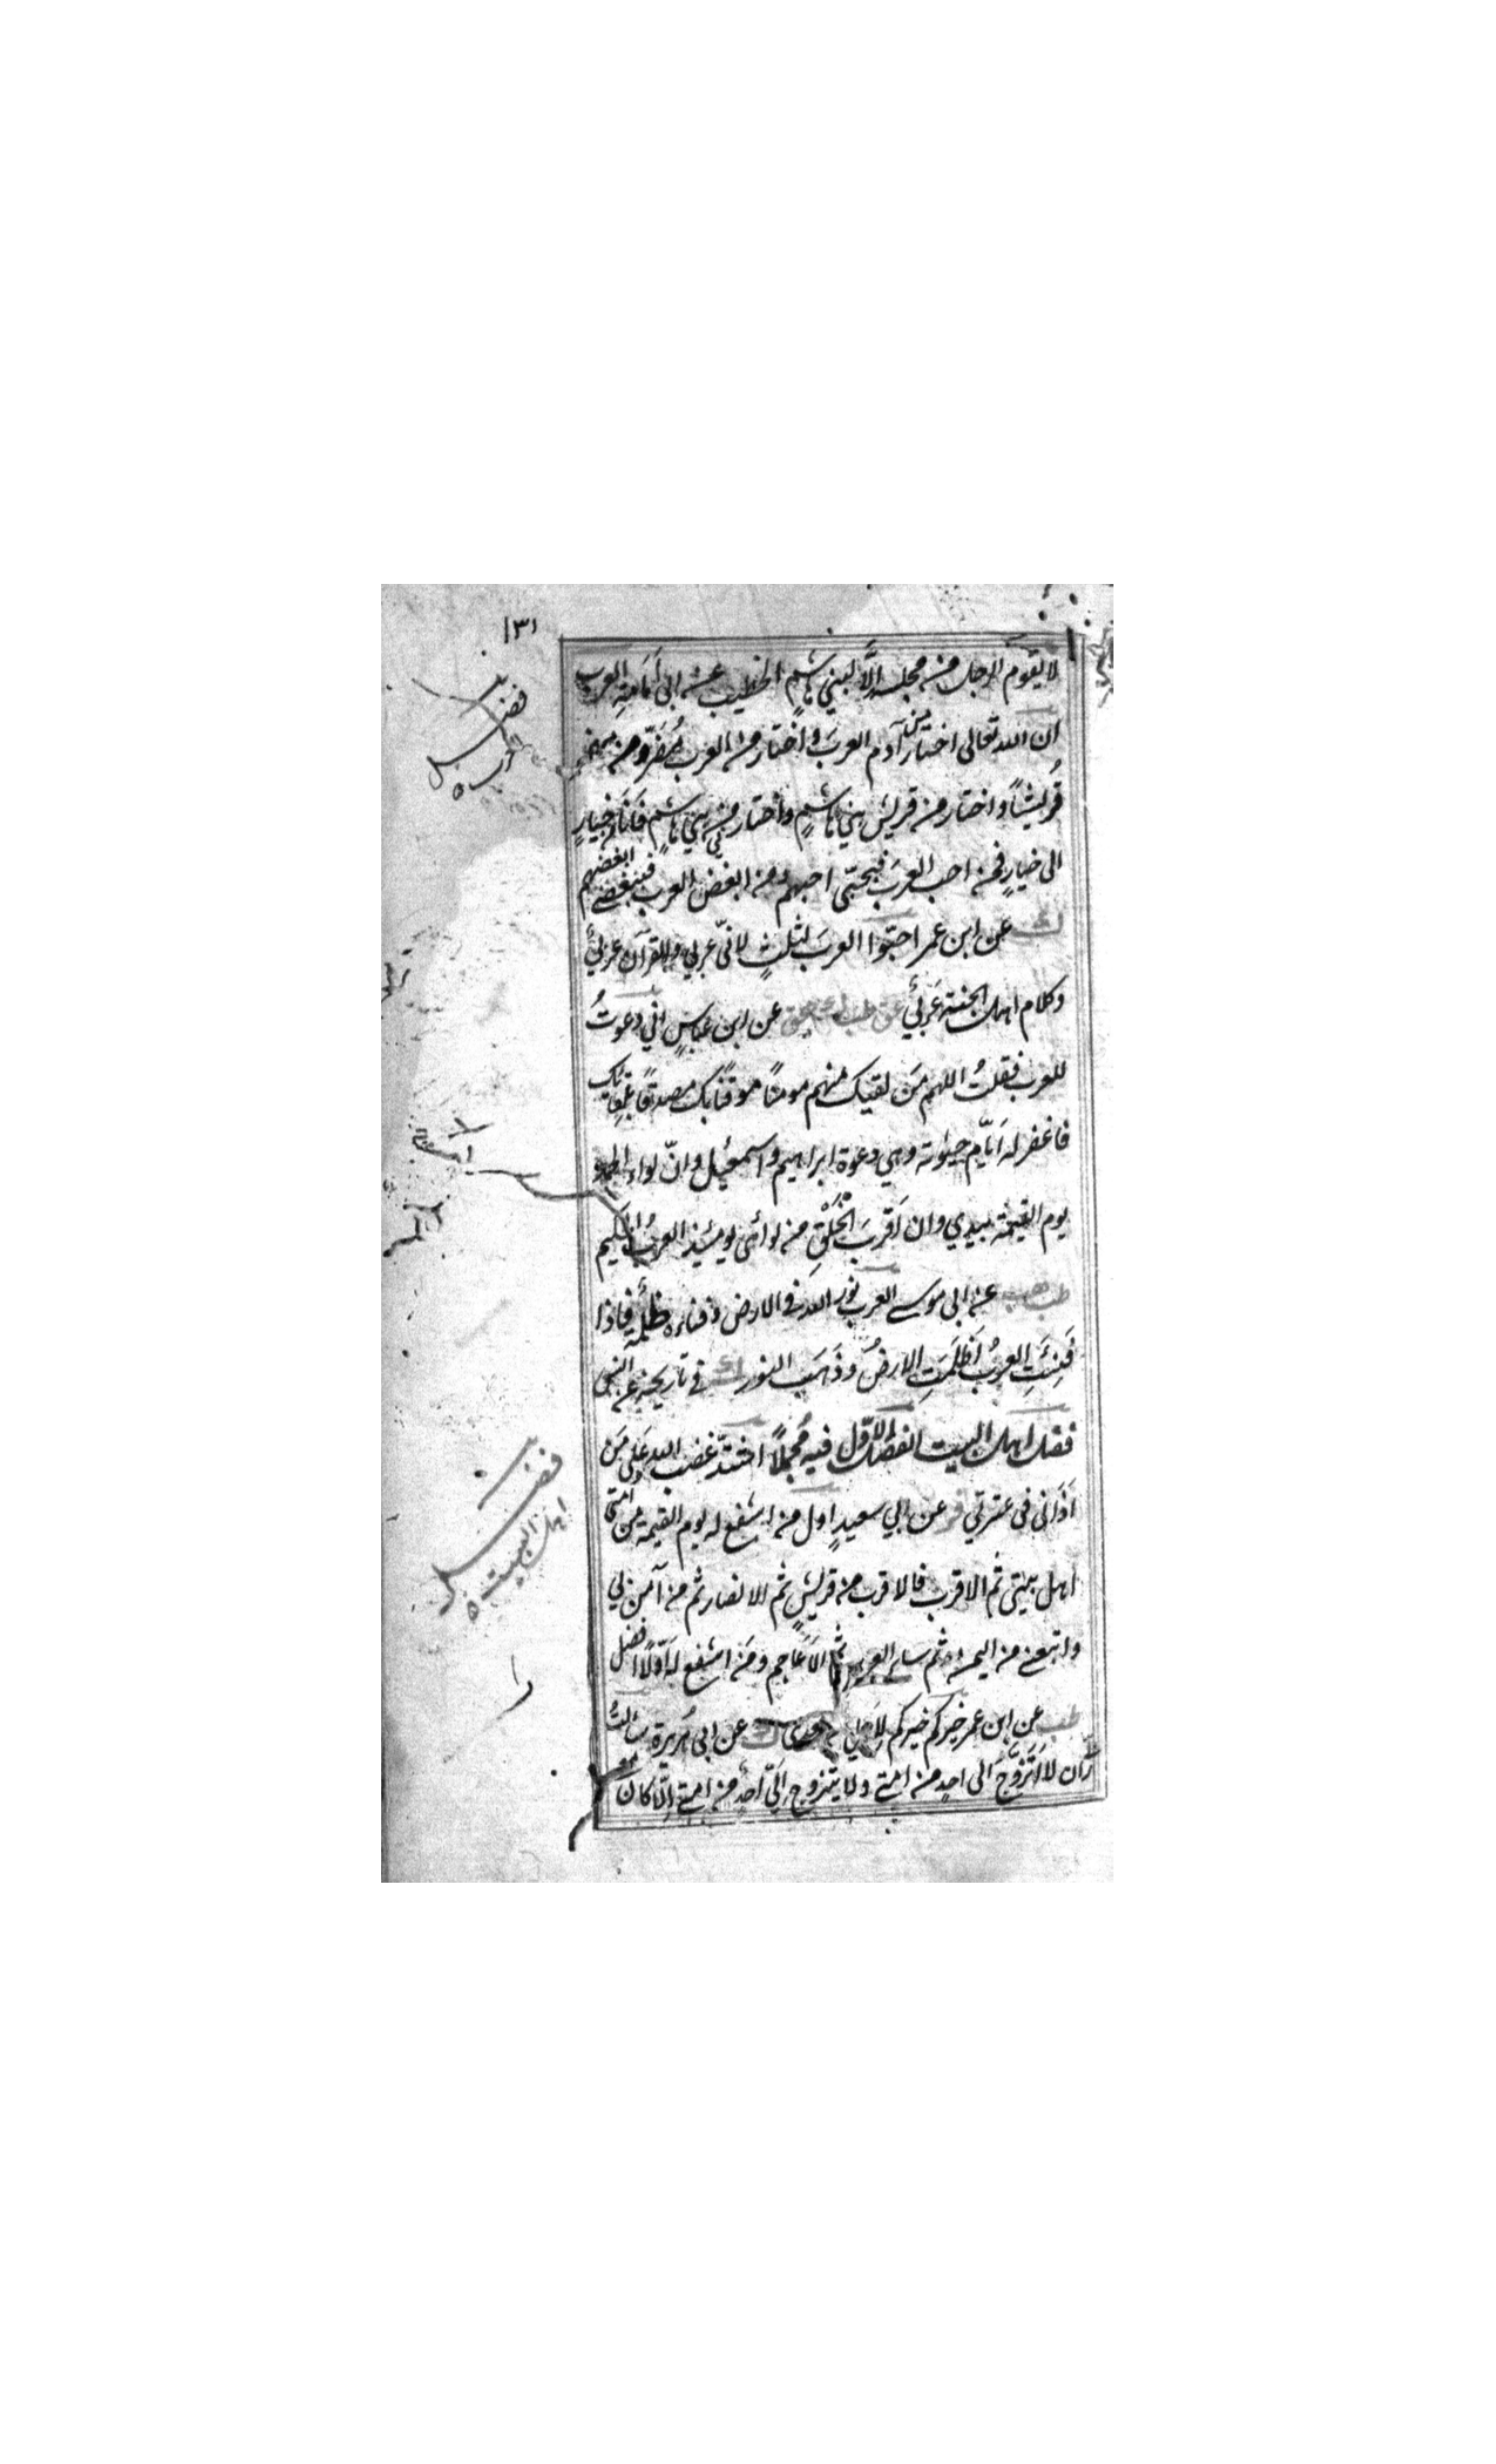 ١٣١
لا يقوم الرجل من مجلسه إلّا لبني هاشمٍ الخطيب عن ابى اَمَامَةِ العرب
ان الله تعالى اختار من آدم العربَ واختار من العرب مُضَرَ ومن مضر
قُريشًا واختار من قريش بني هاشمٍ واختارني من بني هاشم فاَنَا من خيارٍ
الى خيارٍ فمن احب العربَ فبحبّى احبهم ومن ابغض العرب فببغضى ابغضهم
ك عن ابن عمر احبّوا العربَ لثلثٍ لانّى عربي والقرآن عربيٌ
وكلام اهل الجنة عَرَبيٌ عق طب ك هق عن ابن عباسٍ اني دعوتُ
للعرب فقلتُ اللهم مَن لقيك منهم مومنًا موقنًا بك مصدقًا بلقائك
فاغفر له اَيّام حيٰوته وهي دعوة ابراهيم واسمعيل وانّ لواء الحمد
يوم القيٰمة بيدي وان اَقربَ الخَلْقِ من لوائى يومئذٍ العربُ الحكيم
طب هب عن ابى موسے العرب نور الله فى الارض وفناءه ظُلمة فاذا
فَنِيَتِ العربُ اَظلَمَتِ الارضُ وذَهَبَ النور ك في تاريخه عن انس
فضل اهل البيت الفصل الاوّل فيه مُجملًا اشتدّ غضب الله عَلى مَن
آذَانى فى عترتي فر عن ابي سعيدٍ اول من اشفع له يوم القيمة من امتى
اهل بيتى ثم الاقرب فالاقرب من قريشٍ ثم الانصار ثم من آمن بي
واتبعنے من اليمن ثم سائر العرب ثم الاَعَاجم ومَن اشفع له اَوّلًا افضل
طب عن ابن عمر خيركم خيركم لِاَهلي من بعدى ك عن ابى هُريرة سألتُ
رَبّى ان لا اَتَزَوَّجَ الى احدٍ من امتے ولا يتزوج اِلَيَّ احدٌ من امتے اِلّا كان
فضل
العرب
فضل
اهل البيت